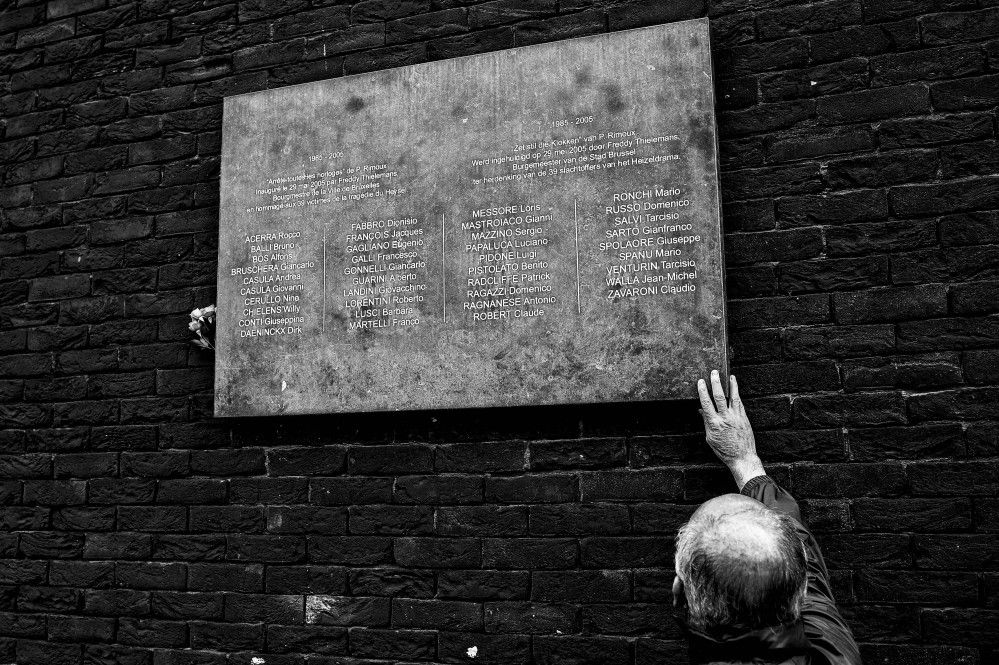 1985 - 2005
"Arrête toutes les horloges" de P. Rimoux
Inauguré le 29 mai 2005 par Freddy Thielemans,
Bourgmestre de la Ville de Bruxelles
en hommage aux 39 victimes de la tragédie du Heysel
ACERRA Rocco
BALLI Bruno
BOS Alfons
BRUSCHERA Giancarlo
CASULA Andrea
CASULA Giovanni
CERULLO Nino
CHIELENS Willy
CONTI Giuseppina
DAENINCKX Dirk
FABBRO Dionisio
FRANÇOIS Jacques
GAGLIANO Eugenio
GALLI Francesco
GONNELLI Giancarlo
GUARINI Alberto
LANDINI Giovacchino
LORENTINI Roberto
LUSCI Barbara
MARTELLI Franco
1985 - 2005
"Zet stil die Klokken" van P. Rimoux
Werd ingehuldigd op 29 mei 2005 door Freddy Thielemans,
Burgemeester van de Stad Brussel
ter herdenking van de 39 slachtoffers van het Heizeldrama.
MESSORE Loris
MASTROIACO Gianni
MAZZINO Sergio
PAPALUCA Luciano
PIDONE Luigi
PISTOLATO Benito
RADCLIFFE Patrick
RAGAZZI Domenico
RAGNANESE Antonio
ROBERT Claude
RONCHI Mario
RUSSO Domenico
SALVI Tarcisio
SARTO Gianfranco
SPOLAORE Giuseppe
SPANU Mario
VENTURIN Tarcisio
WALLA Jean-Michel
ZAVARONI Claudio